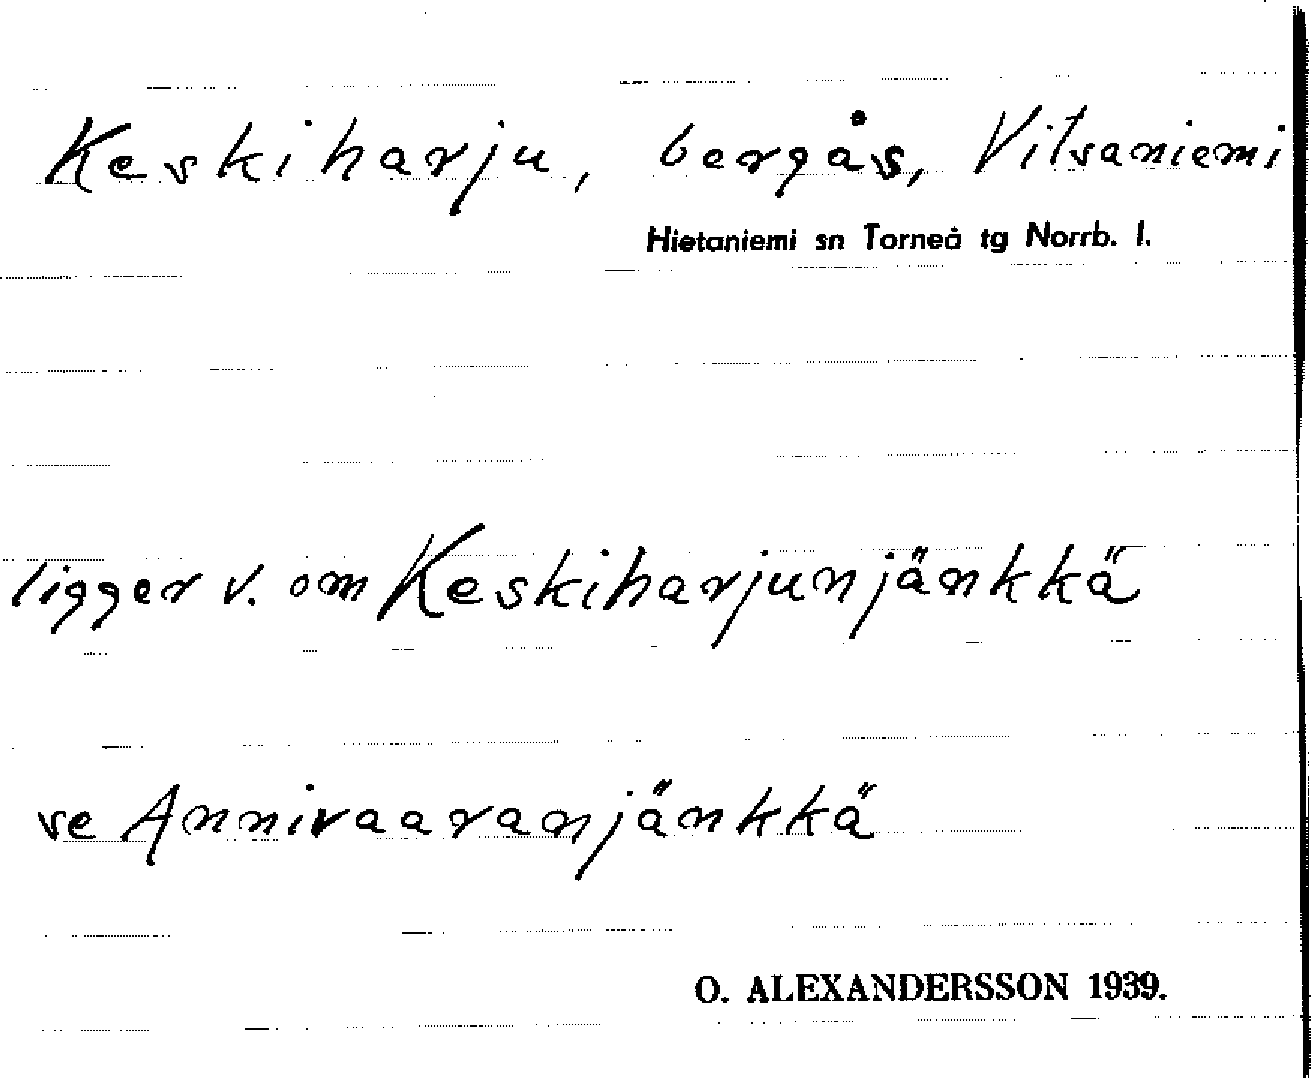 Keskiharju, bergås, Vitsaniemi
Hietaniemi sn Torneå tg Norrb. l.
ligger v. om Keskiharjunjänkkä
se Annivaaranjänkkä
O. ALEXANDERSSON 1939.